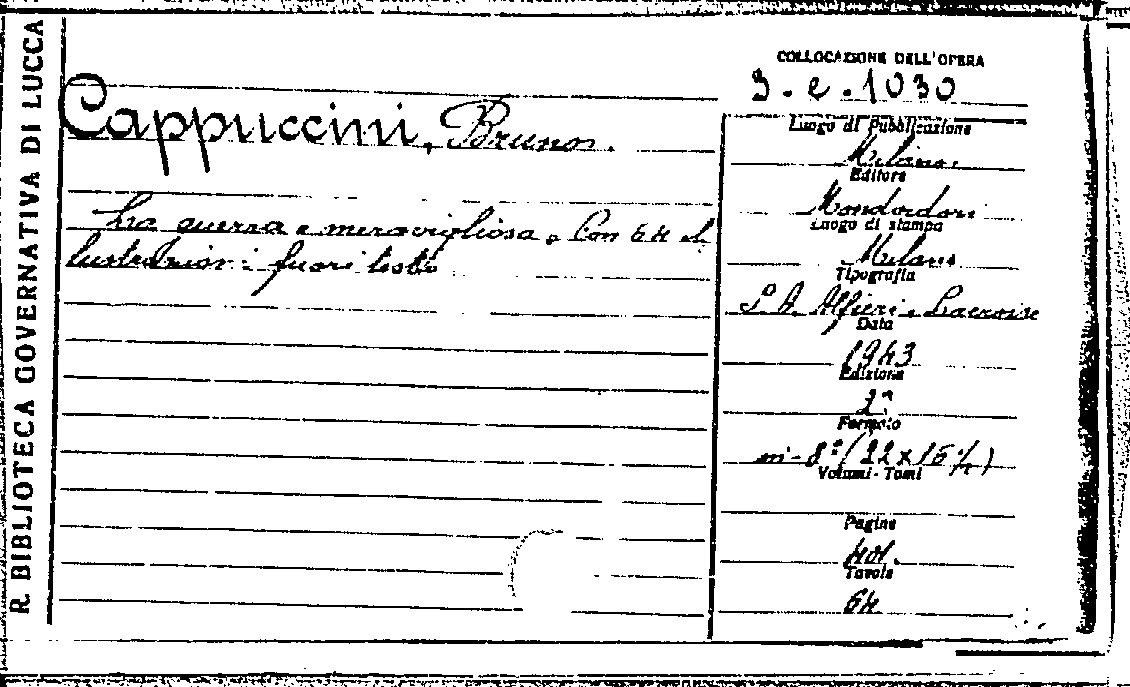 R. BIBLIOTECA GOVERNATIVA DI LUCCA
COLLOCAZIONE DELL'OPERA
9. e. 1030
Cappuccini, Bruno.
La guerra e meravigliosa. Con 64 il
lustrazioni fuori testo
Luogo di Pubblicazione
Milano.
Editore
Mondadori
Luogo di stampa
Milano
Tipografia
S. A. Alfieri e Lacroix
Data
1943
Edizione
2ª
Formato
in-8° (22x15½)
Volumi - Tomi
Pagine
401.
Tavole
64